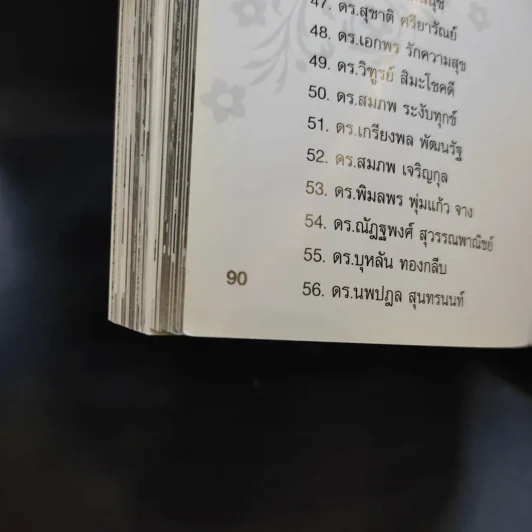 47. ดร.สุชาติ ศรียารัณย์
48. ดร.เอกพร รักความสุข
49. ดร.วิฑูรย์ สิมะโชคดี
50. ดร.สมภพ ระงับทุกข์
51. ดร.เกรียงพล พัฒนรัฐ
52. ดร.สมภพ เจริญกุล
53. ดร.พิมลพร พุ่มแก้ว จาง
54. ดร.ณัฎฐพงศ์ สุวรรณพาณิชย์
55. ดร.บุหลัน ทองกลีบ
56. ดร.นพปฎล สุนทรนนท์
90